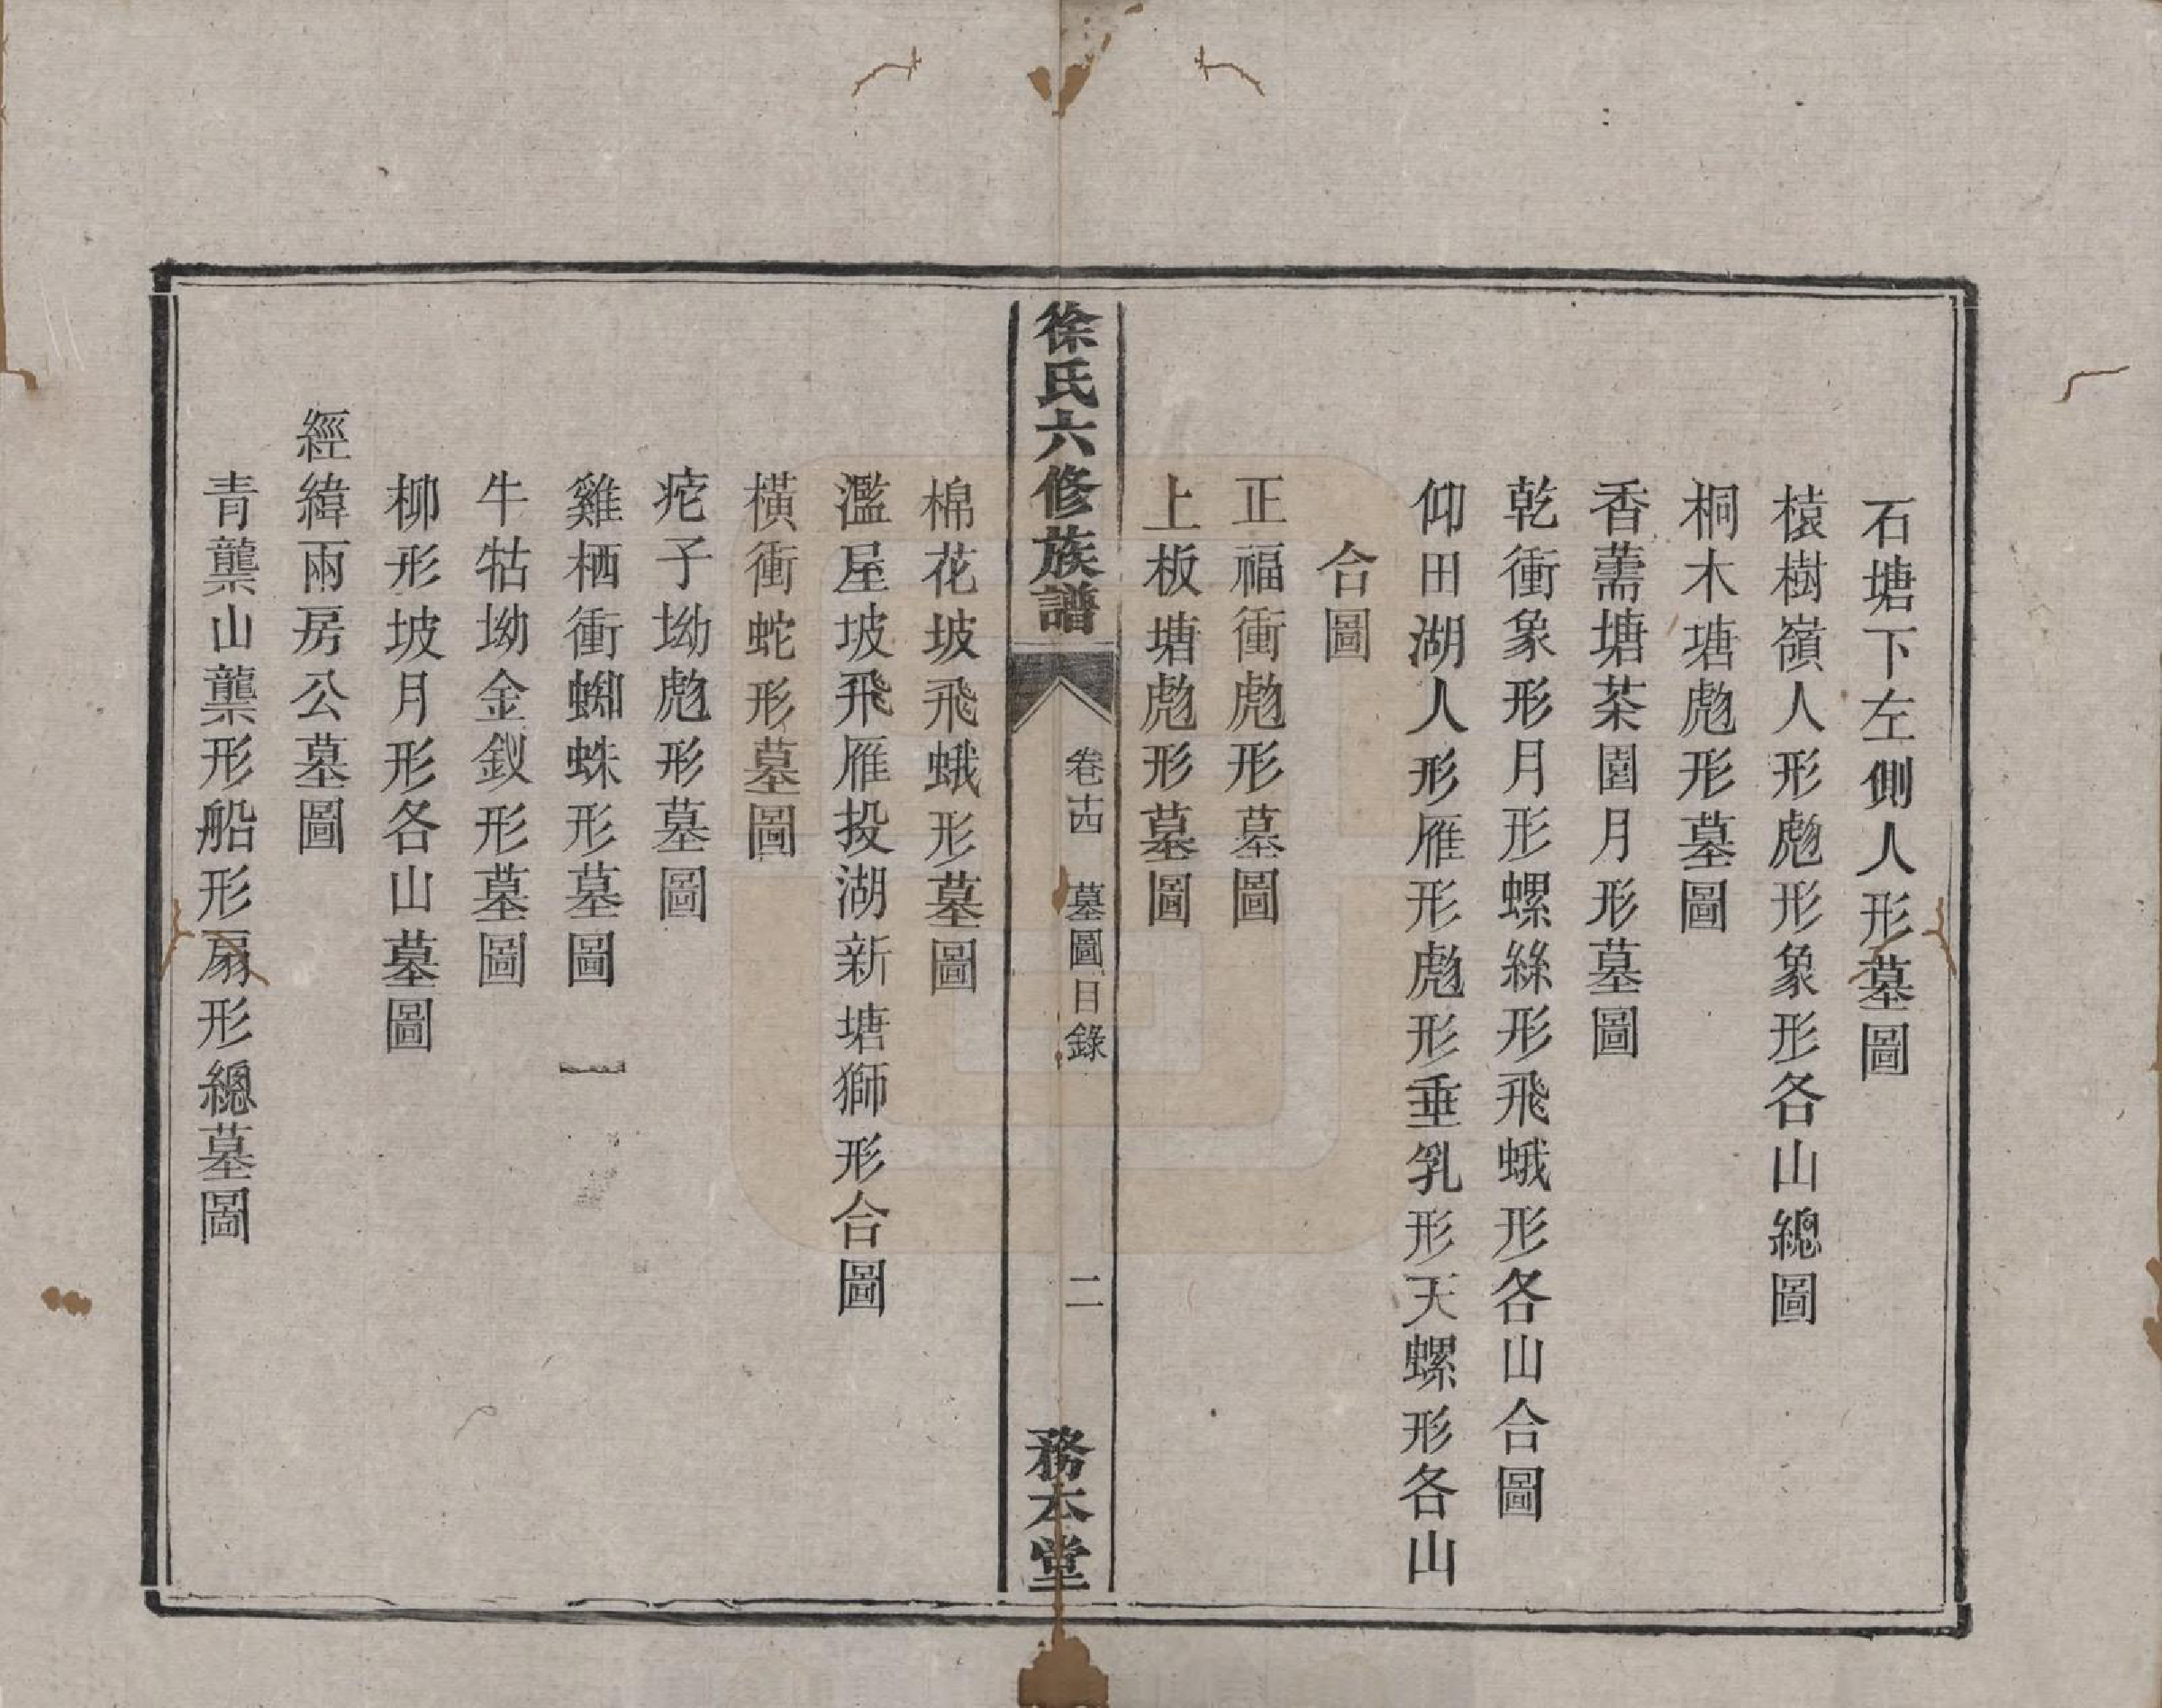 石塘下左側人形墓圖
櫞樹嶺人形彪形象形各山總圖
桐木塘彪形墓圖
香薷塘茶園月形墓圖
乾衝象形月形螺絲形飛蛾形各山合圖
仰田湖人形雁形彪形垂乳形天螺形各山
合圖
正福衝彪形墓圖
上板塘彪形墓圖
徐氏六修族譜
卷十四
墓圖目錄
二
務本堂
棉花坡飛蛾形墓圖
濫屋坡飛雁投湖新塘獅形合圖
橫衝蛇形墓圖
疕子坳彪形墓圖
雞栖衝蜘蛛形墓圖
牛牯坳金釵形墓圖
柳形坡月形各山墓圖
經緯兩房公墓圖
青龍山龍形船形扇形總墓圖